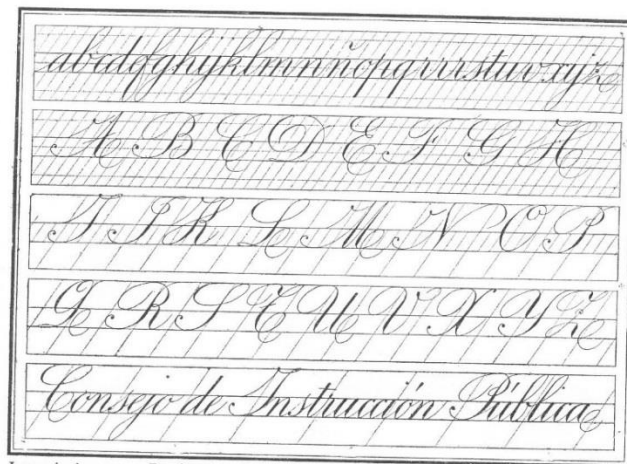 abcdefghijklmnñopqrrrstuvxyjz
A B C D E F G H
I J K L M N O P
Q R S T U V X Y Z
Consejo de Instrucción Pública